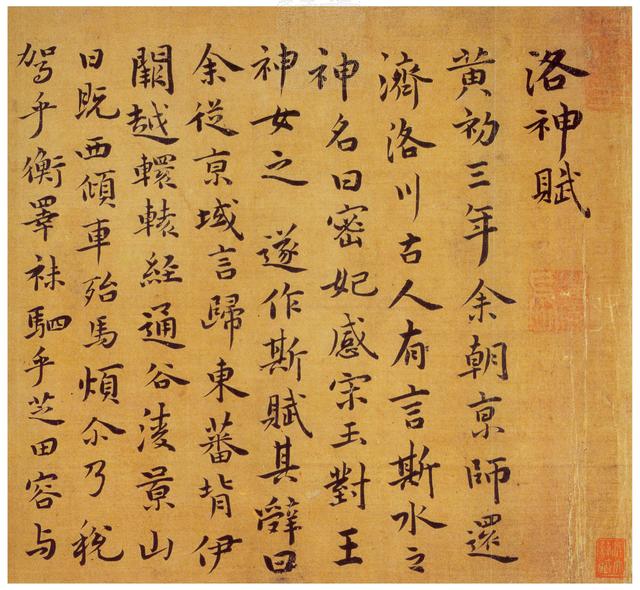 洛神賦
黄初三年余朝京師還
濟洛川古人有言斯水之
神名曰宓妃感宋玉對王
神女之遂作斯賦其辭曰
余從京域言歸東蕃背伊
闕越轘轅經通谷陵景山
日既西傾車殆馬煩尒乃税
駕乎衡睪秣駟乎芝田容与